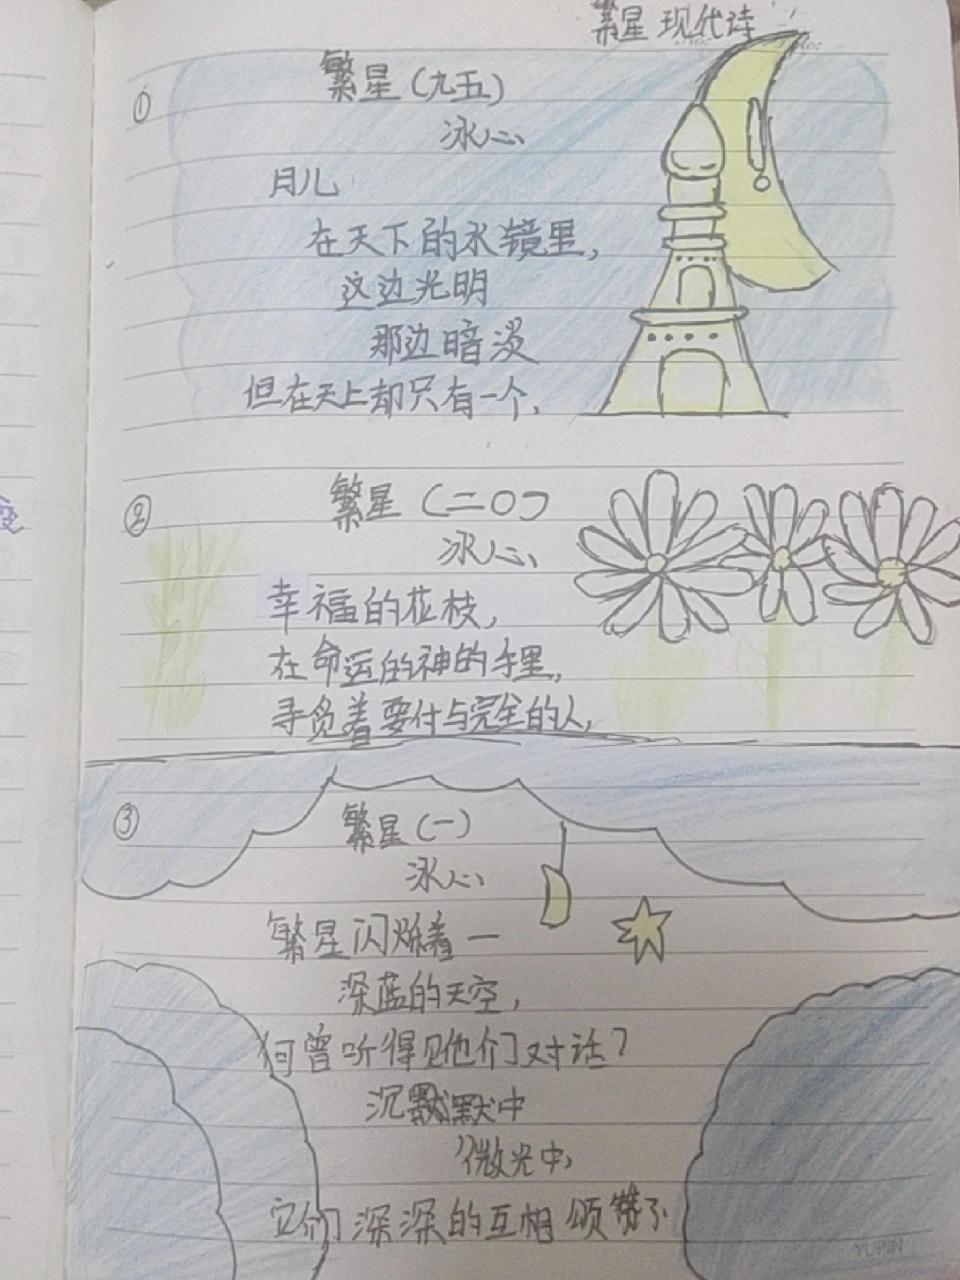 繁星 现代诗
①
繁星(九五)
冰心
月儿
在天下的水镜里，
这边光明
那边暗淡
但在天上却只有一个，
②
繁星(二〇)
冰心
幸福的花枝，
在命运的神的手里，
寻觅着要付与完全的人，
③
繁星(一)
冰心
繁星闪烁着一
深蓝的天空，
何曾听得见他们对话？
沉默默中
微光中，
它们深深的互相颂赞了
YUPIN